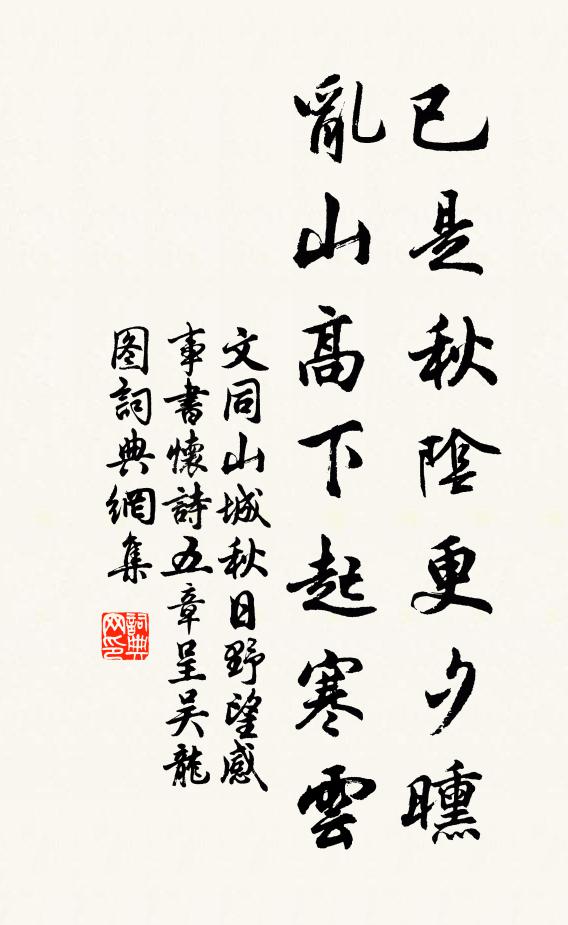 已是秋陰更夕曛
亂山高下起寒雲
文同山城秋日野望感
事書懷詩五章呈吴龍
图詞典網集
詞典网印